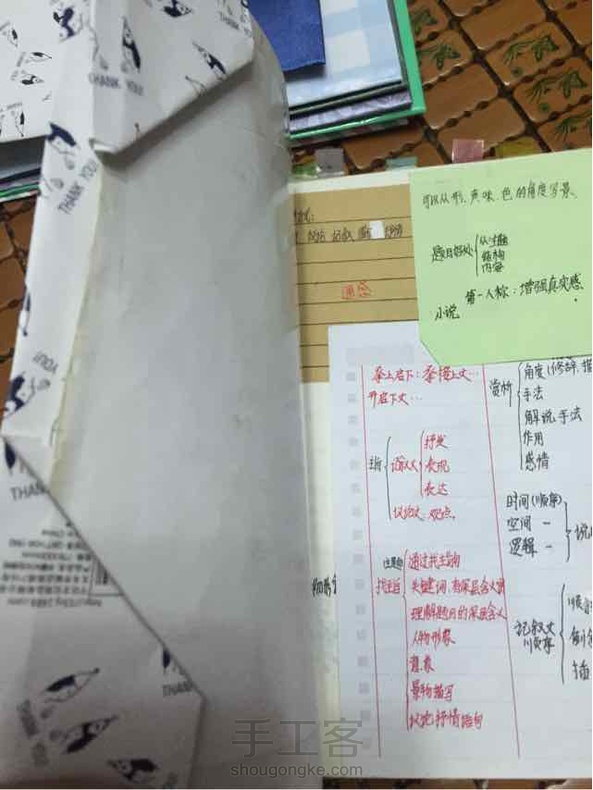 THANK YOU!
THANK YOU!
THANK YOU
YOU!
THANK
THANK
可以从形、声、味、色的角度写景。
题目好处
从主题
结构
内容
第一人称：增强真实感
小说
通感
承上启下：承接上文…
开启下文…
赏析
角度(修辞、描
手法
解说手法
作用
感情
主旨
记叙文
抒发
表现
表达
议论文：观点
时间(顺序)
空间 〃
逻辑 〃
说
找主旨
通过找主旨句
关键词、有深层含义词
理解题目的深层含义
人物形象
景物描写
议论抒情语句
记叙文
顺序
顺
倒
插
手工客
shougongke.com